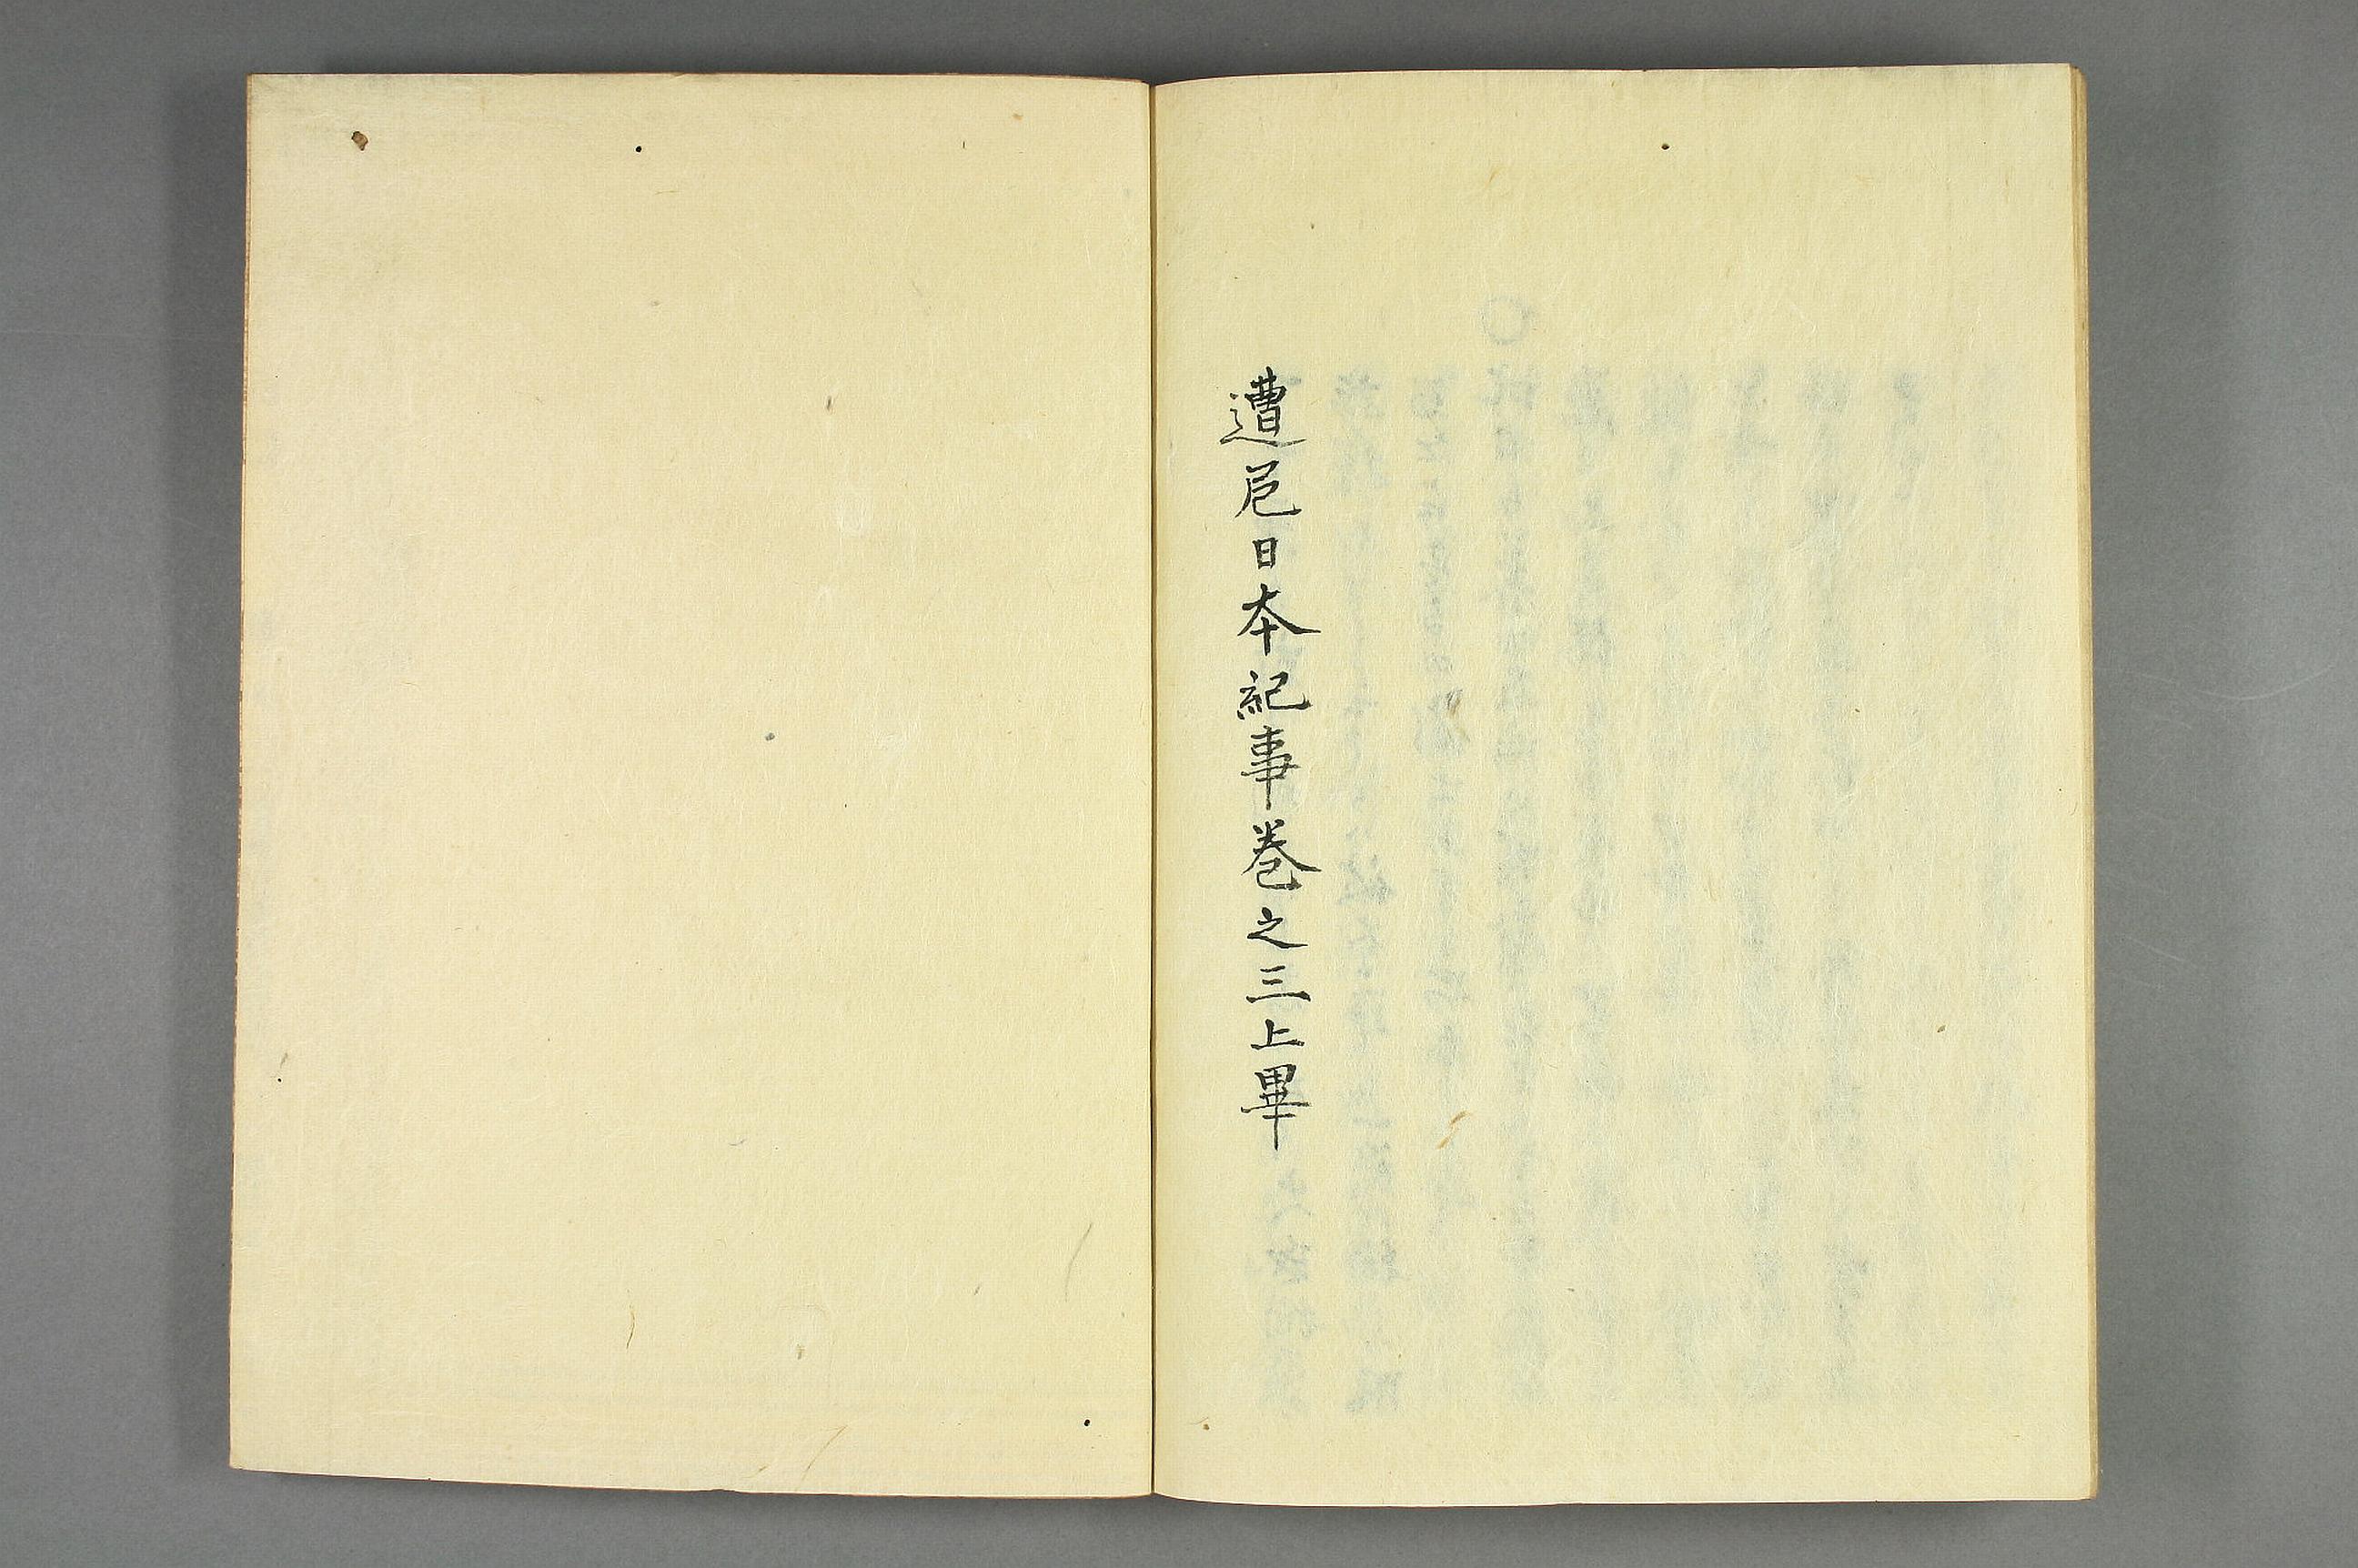 遭厄日本紀事巻之三上畢